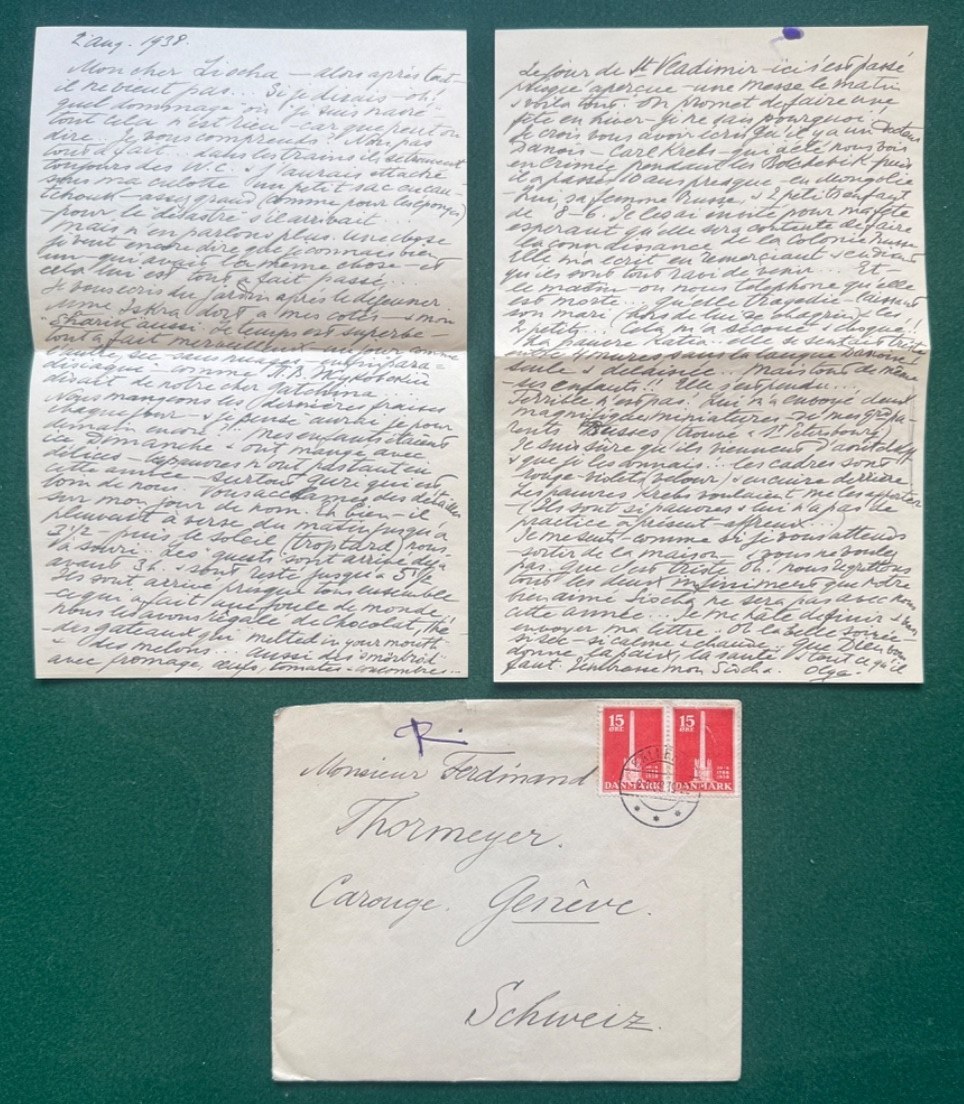 2 aug. 1938.
Mon cher Siocha – alors après tout
il ne vient pas... Si je disais – oh!
quel dommage ou je suis navré
tout cela n'est rien – car que peut on
dire. Je vous comprends! Mais pas
tout à fait... dans les trains ils se trouvent
toujours des W.C. & j'aurais attaché
sous ma culotte un petit sac en caou-
tchouk – assez grand (comme pour les éponges)
pour le désastre s'il arrivait...
Mais n'en parlons plus. Une chose
je veut encore dire que je connais bien
un – qui avait la même chose – et
cela lui est tout à fait passé...
Je vous écris du jardin après le dejeuner
Mme Iskra dort a mes cotés – & mon
Sharik aussi. Le temps est superbe –
tout à fait merveilleux un jour comme
l'autre, sec – sans nuages
comme
disait de notre cher Gatchina...
Nous mangeons les dernières fraises
chaque jour – & je pense aurai je pour
demain encore? Mes enfants étaient
ici Dimanche & ont mangé avec
délices – les pauvres n'ont pas tant eu
cette année – surtout Gure qui est
loin de nous. Vous
des détailles
sur mon jour de nom. Eh bien – il
pleuvait a verse du matin jusqu'à
2½ – puis le soleil (trop tard) nous
a souri. Les guests sont arrivé déjà
avant 3h. & sont resté jusqu'a 5½
Ils sont arrivé presque tous ensemble
ce qui a fait une foule de monde
Nous les avons régalé de chocolat, thé
des gateaux qui melted in your mouth
& des melons... aussi des smörbröd
avec fromage, œufs, tomates – concombres...
Le jour de St Vladimir – ici s'est passé
presque aperçue – une messe le matin
& voila tout. On promet de faire une
fête en hiver – je ne sais pourquoi.
Je crois vous avoir écrit qu'il y a un docteur
Danois – Carl Krebs – qui a été nous voir
en Crimée pendant les Bolchevik puis
il a passé 10 ans presque – en Mongolie
Lui, sa femme Russe, & 2 petits enfant
de 8–6. Je les ai invité pour ma fête
esperant qu'elle sera contente de faire
la connaissance de la Colonie Russe
Elle m'a ecrit en remerçiant & en disant
qu'ils sont tout ravi de venir... Et –
le matin – on nous telephone qu'elle
est morte... qu'elle tragedie – laissant
son mari (hors de lui de chagrin) & les
2 petits... Cela m'a secoué & choqué!
La pauvre Katia... elle se sentait triste
entre 4 mures sans la langue Danoise
seule & délaissée... Mais tout de même
ses enfants!! Elle s'est pendu...
Terrible n'est pas! Lui m'a envoyé deux
magnifiques miniatures – de mes grd pa-
rents Russes (trouvé a St Petersbourg)
Je suis sûre qu'ils
& que je les connais... les cadres sont
rouge violet (velour) & en cuire derrière
Les pauvres Krebs voulaient me les apporter
– (Ils sont si pauvres & lui n'a pas de
practice a présent – affreux...)
Je me sents – comme si je vous attends
sortir de la maison – & vous ne voulez
pas. Que c'est triste. Oh! nous regrettons
tout les deux infiniment que notre
bien aimé Siocha ne sera pas avec nous
cette année... Je me hate de finir &
envoyer ma lettre. Oh la belle soirée –
si sec – si calme & chaude... Que Dieu vous
donne la paix, la santé & tout ce qu'il
faut. J'embrasse mon Siocha. Olga.
R.
Monsieur Ferdinand
Thormeyer.
Carouge. Genève.
Schweiz.
15 ØRE
15 ØRE
DANMARK
DANMARK